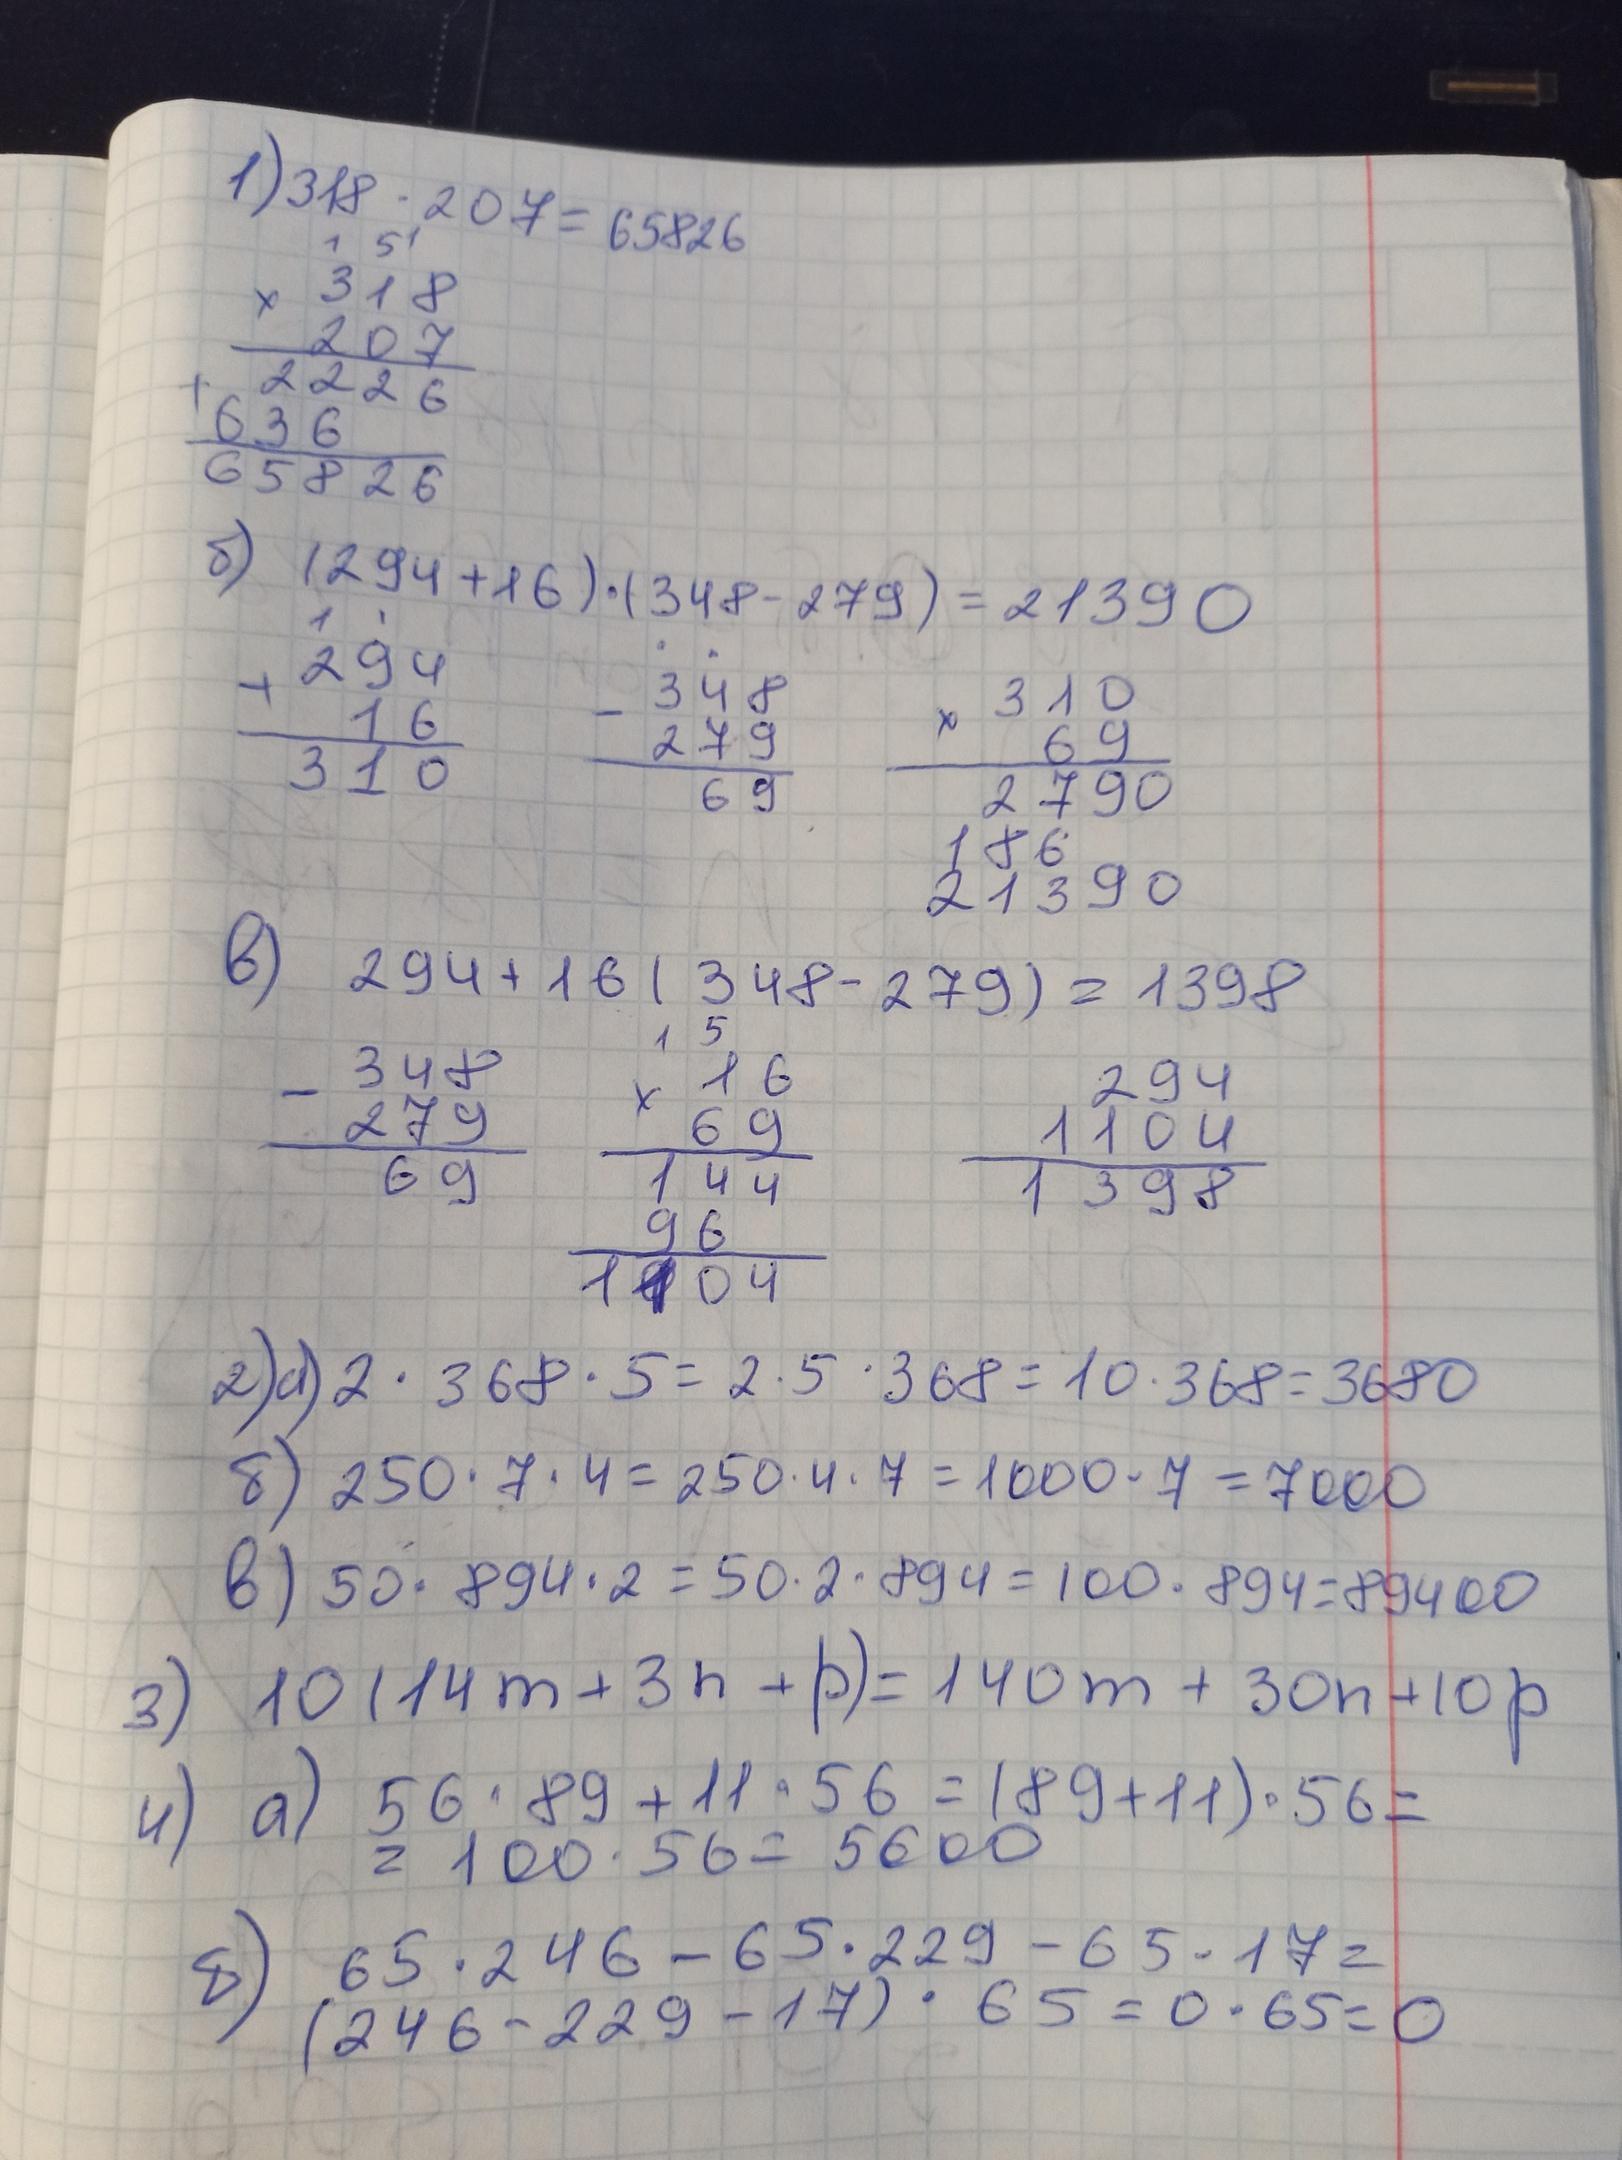 1) 318 · 207 = 65826
1 51
× 318
207
+ 2226
636
65826
б) (294+16)·(348-279) = 21390
1
+ 294 - 348 × 310
16 279 69
310 69 2790
186
21390
в) 294+16(348-279) = 1398
1 5
- 348 × 16 294
279 69 1104
69 144 1398
96
1104
2)а) 2 · 368 · 5 = 2 · 5 · 368 = 10 · 368 = 3680
б) 250 · 7 · 4 = 250 · 4 · 7 = 1000 · 7 = 7000
в) 50 · 894 · 2 = 50 · 2 · 894 = 100 · 894 = 89400
3) 10(14m + 3n + p) = 140m + 30n + 10p
4) а) 56 · 89 + 11 · 56 = (89+11) · 56 =
= 100 · 56 = 5600
б) 65 · 246 - 65 · 229 - 65 · 17 =
(246 - 229 - 17) · 65 = 0 · 65 = 0